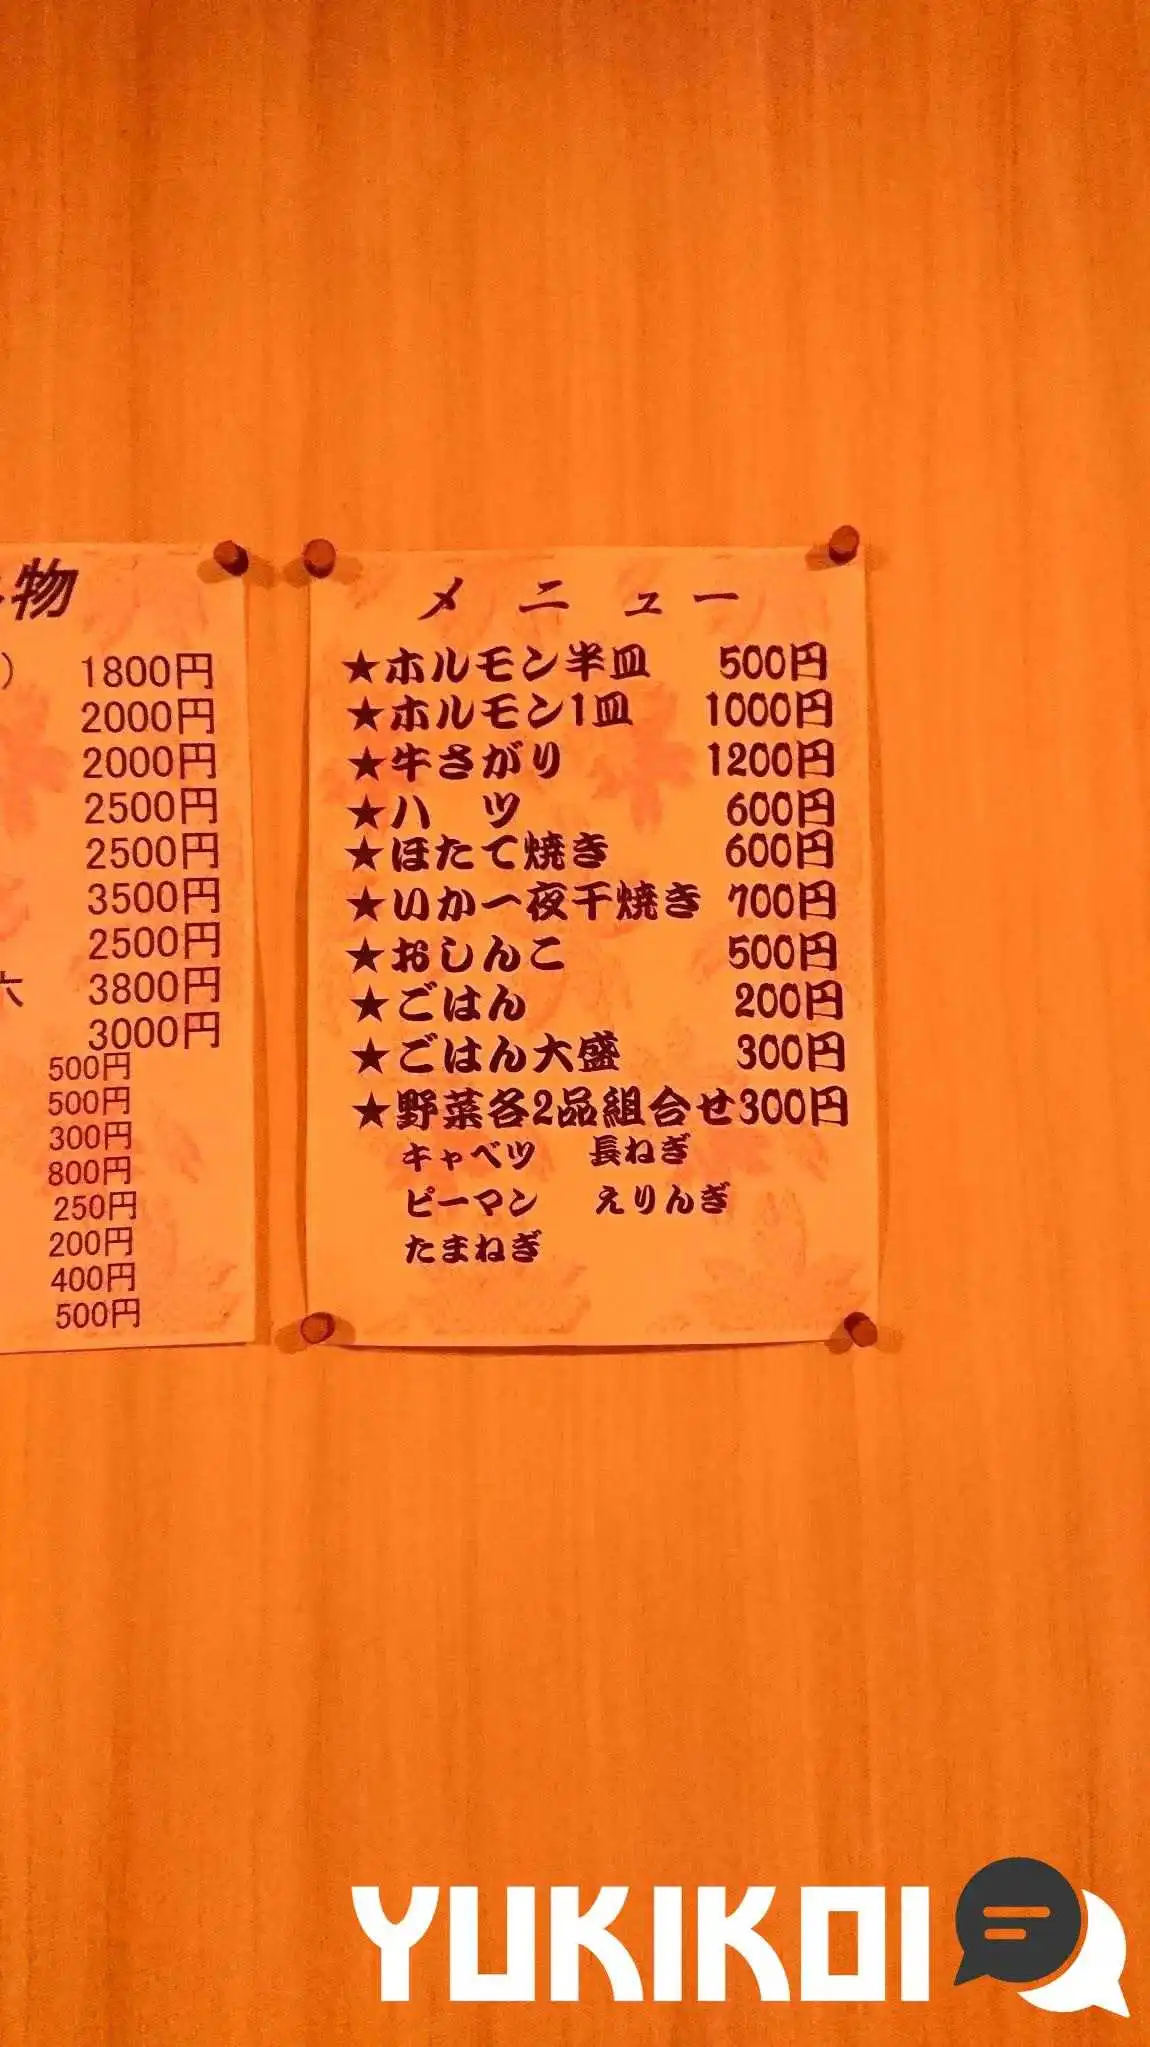 物
) 1800円
2000円
2000円
2500円
2500円
3500円
2500円
六 3800円
3000円
500円
500円
300円
800円
250円
200円
400円
500円
メニュー
★ホルモン半皿 500円
★ホルモン1皿 1000円
★牛さがり 1200円
★ハ ツ 600円
★ほたて焼き 600円
★いか一夜干焼き 700円
★おしんこ 500円
★ごはん 200円
★ごはん大盛 300円
★野菜各2品組合せ300円
キャベツ 長ねぎ
ピーマン えりんぎ
たまねぎ
YUKIKOI